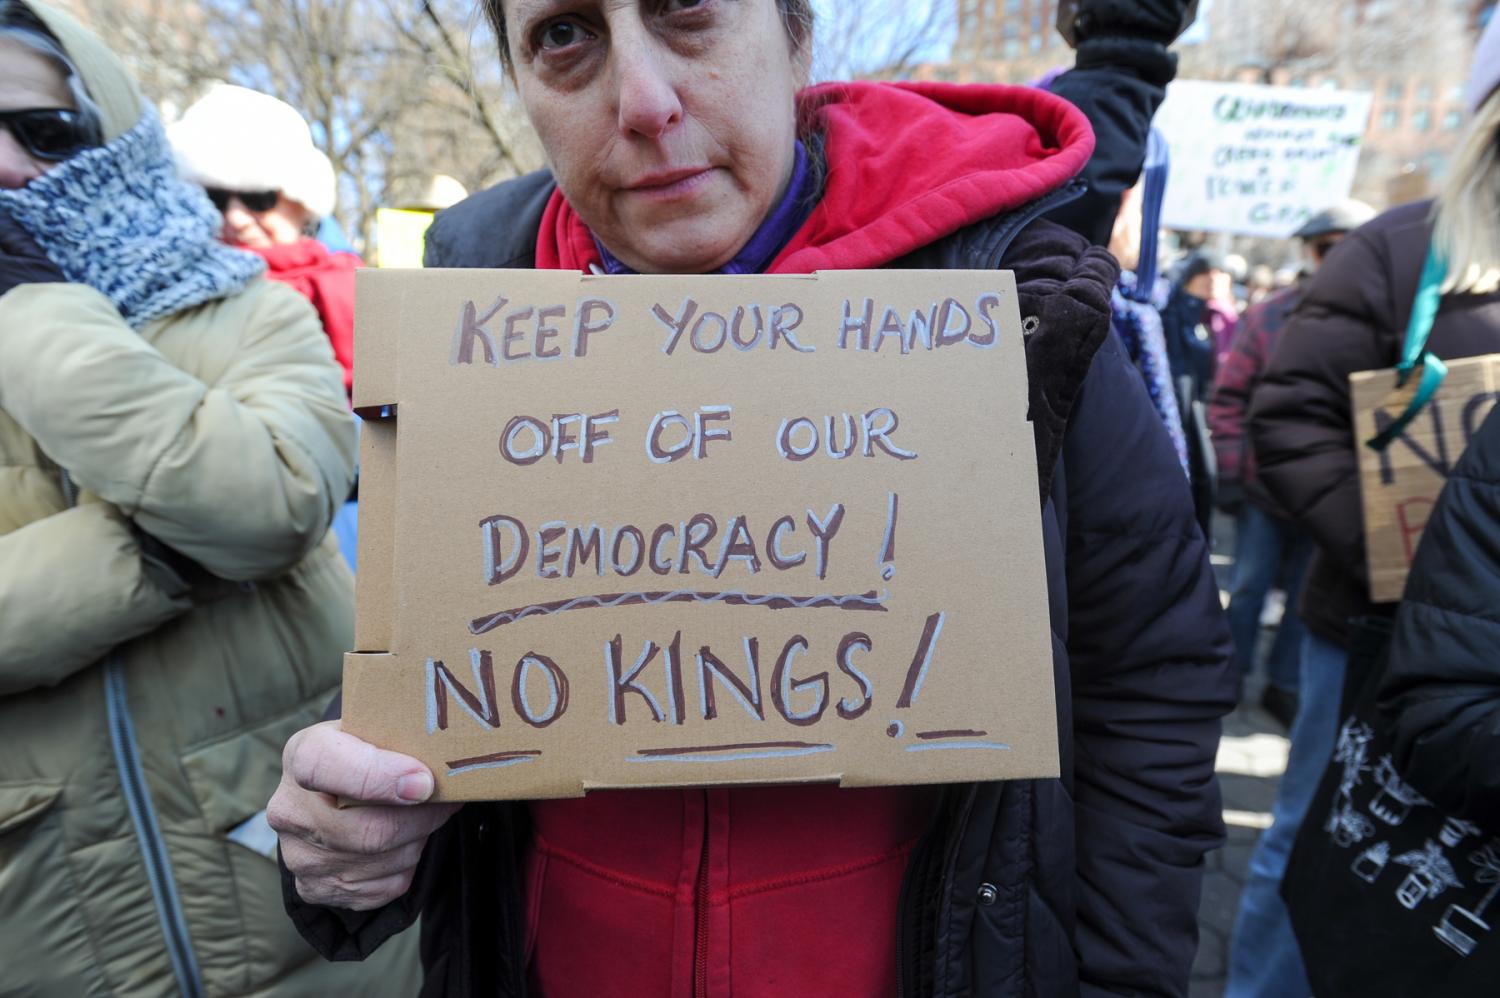 KEEP YOUR HANDS
OFF OF OUR
DEMOCRACY!
NO KINGS!